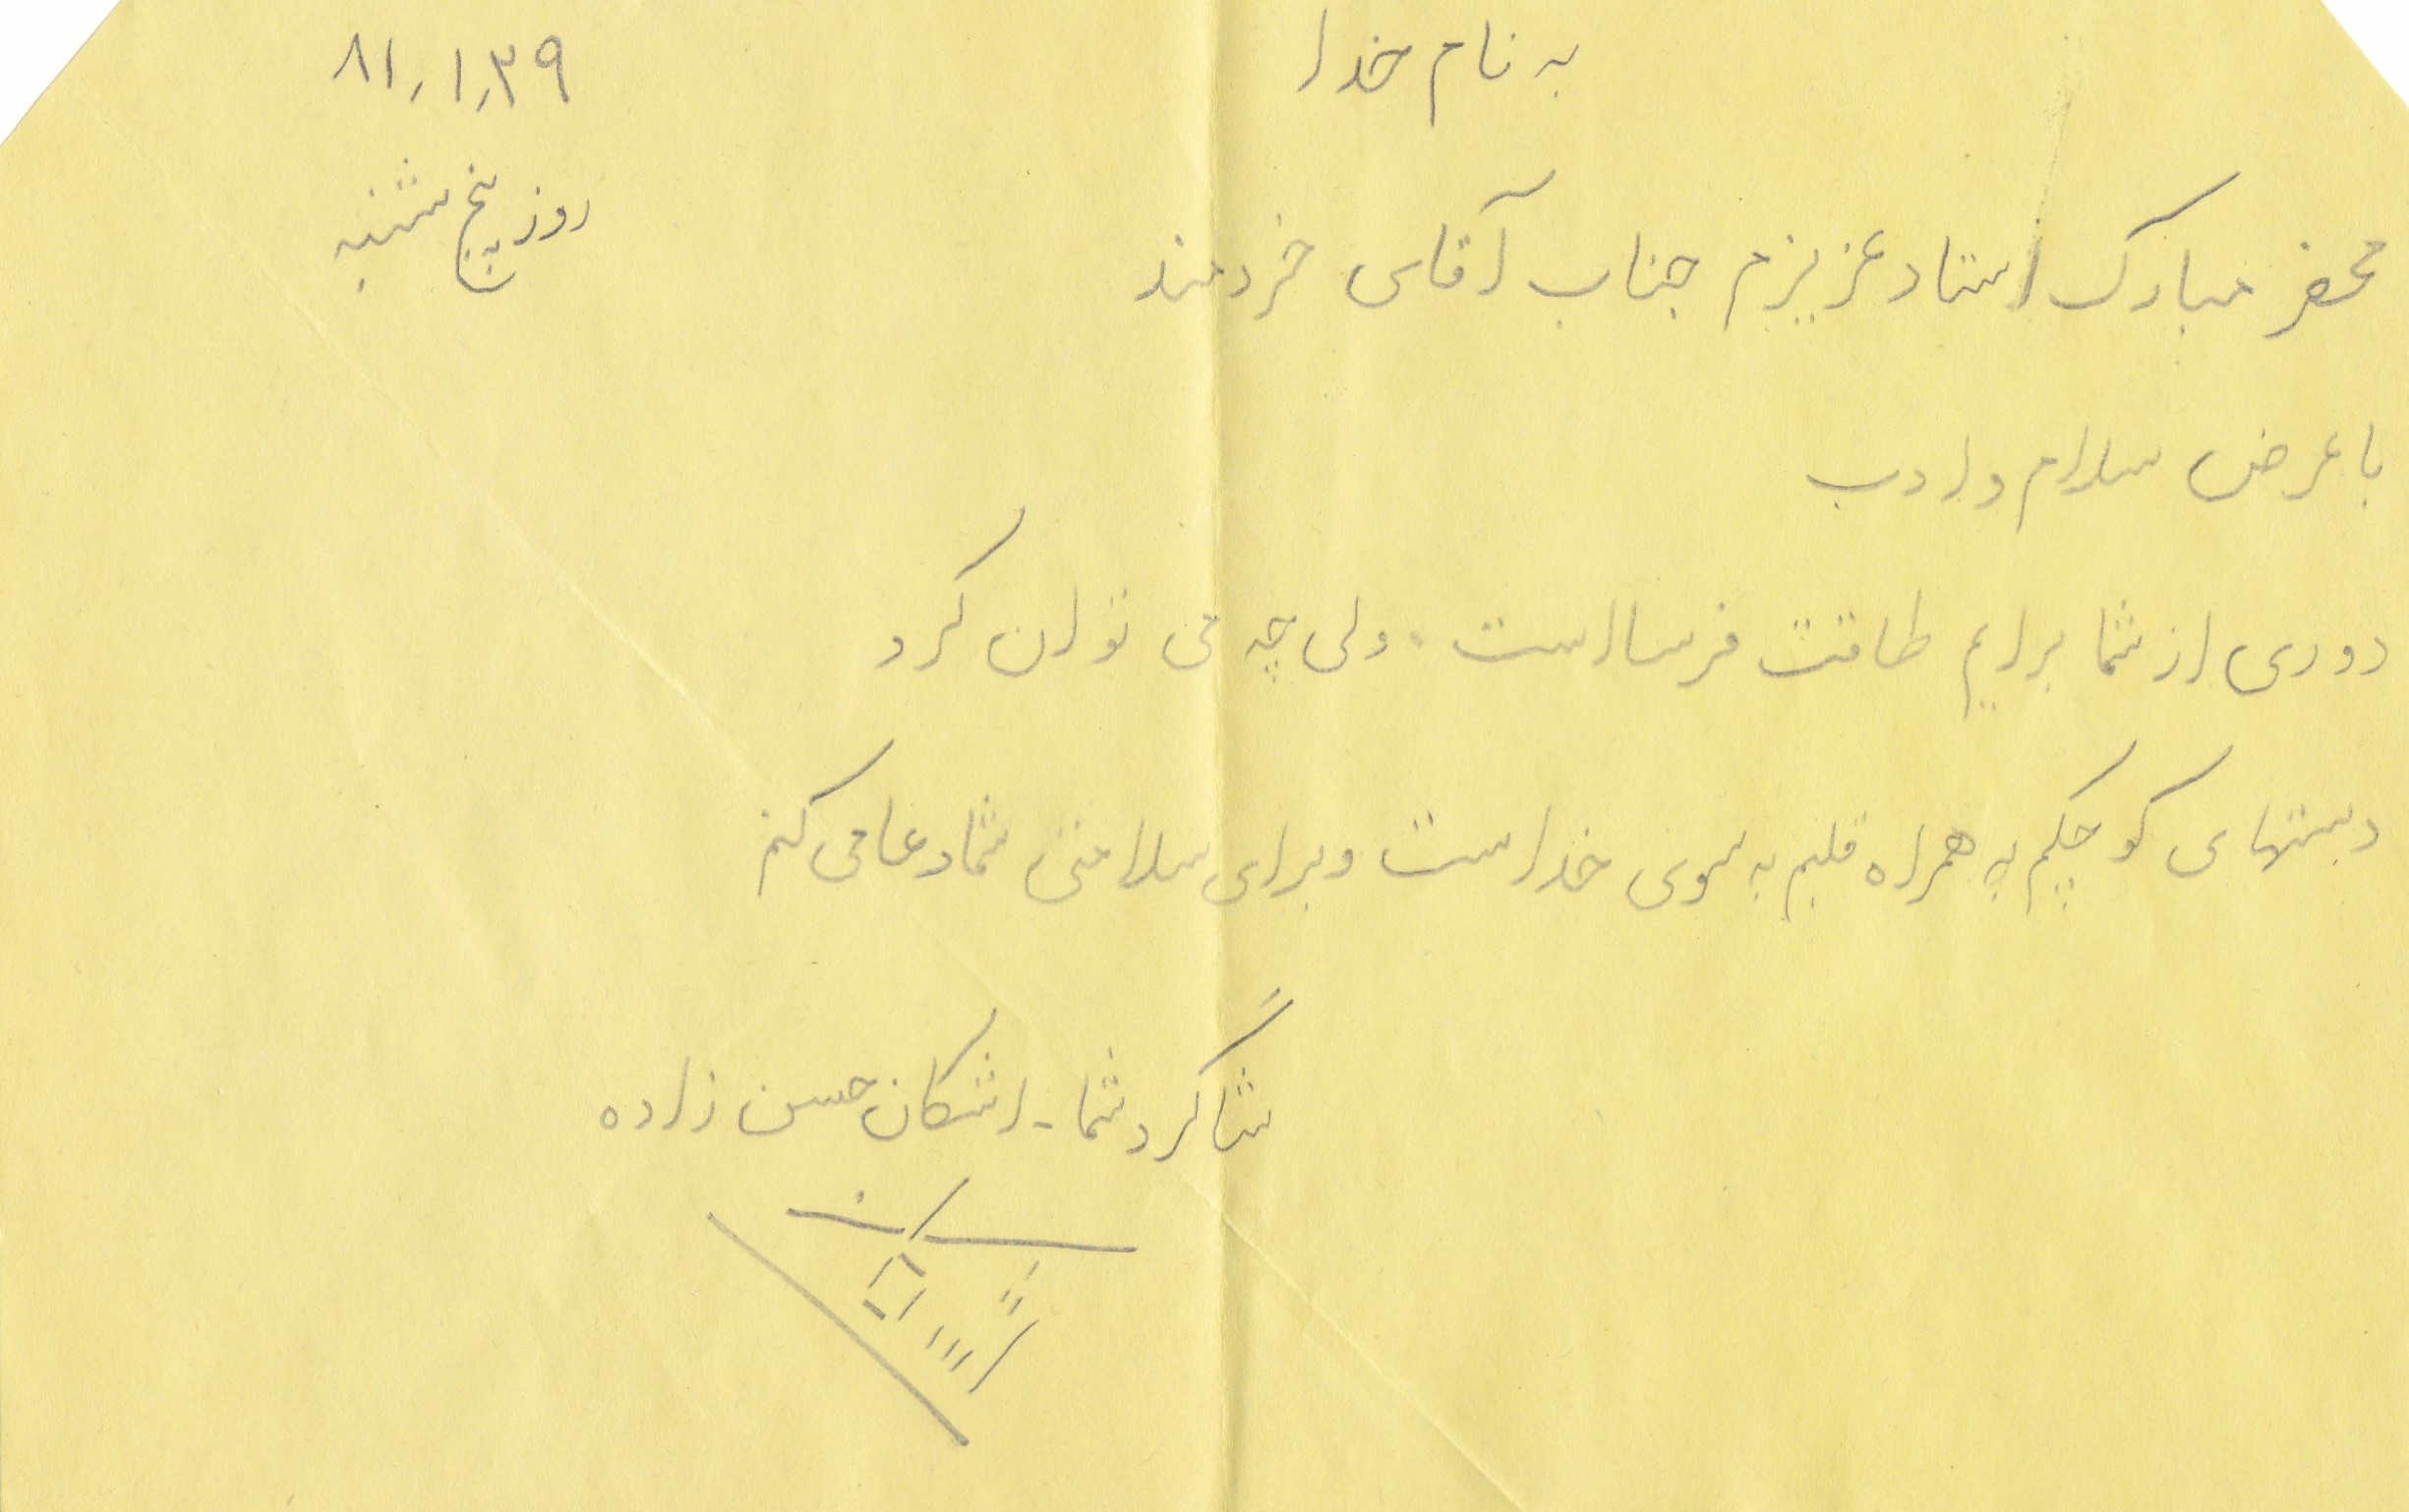 به نام خدا
۸۱/۱/۲۹
روز پنج شنبه
محضر مبارک استاد عزیزم جناب آقای خردمند
با عرض سلام و ادب
دوری از شما برایم طاقت فرسا است. ولی چه می توان کرد
دستهای کوچکم به همراه قلبم به سوی خداست و برای سلامتی شما دعا می کنم
شاگرد شما - اشکان حسن زاده